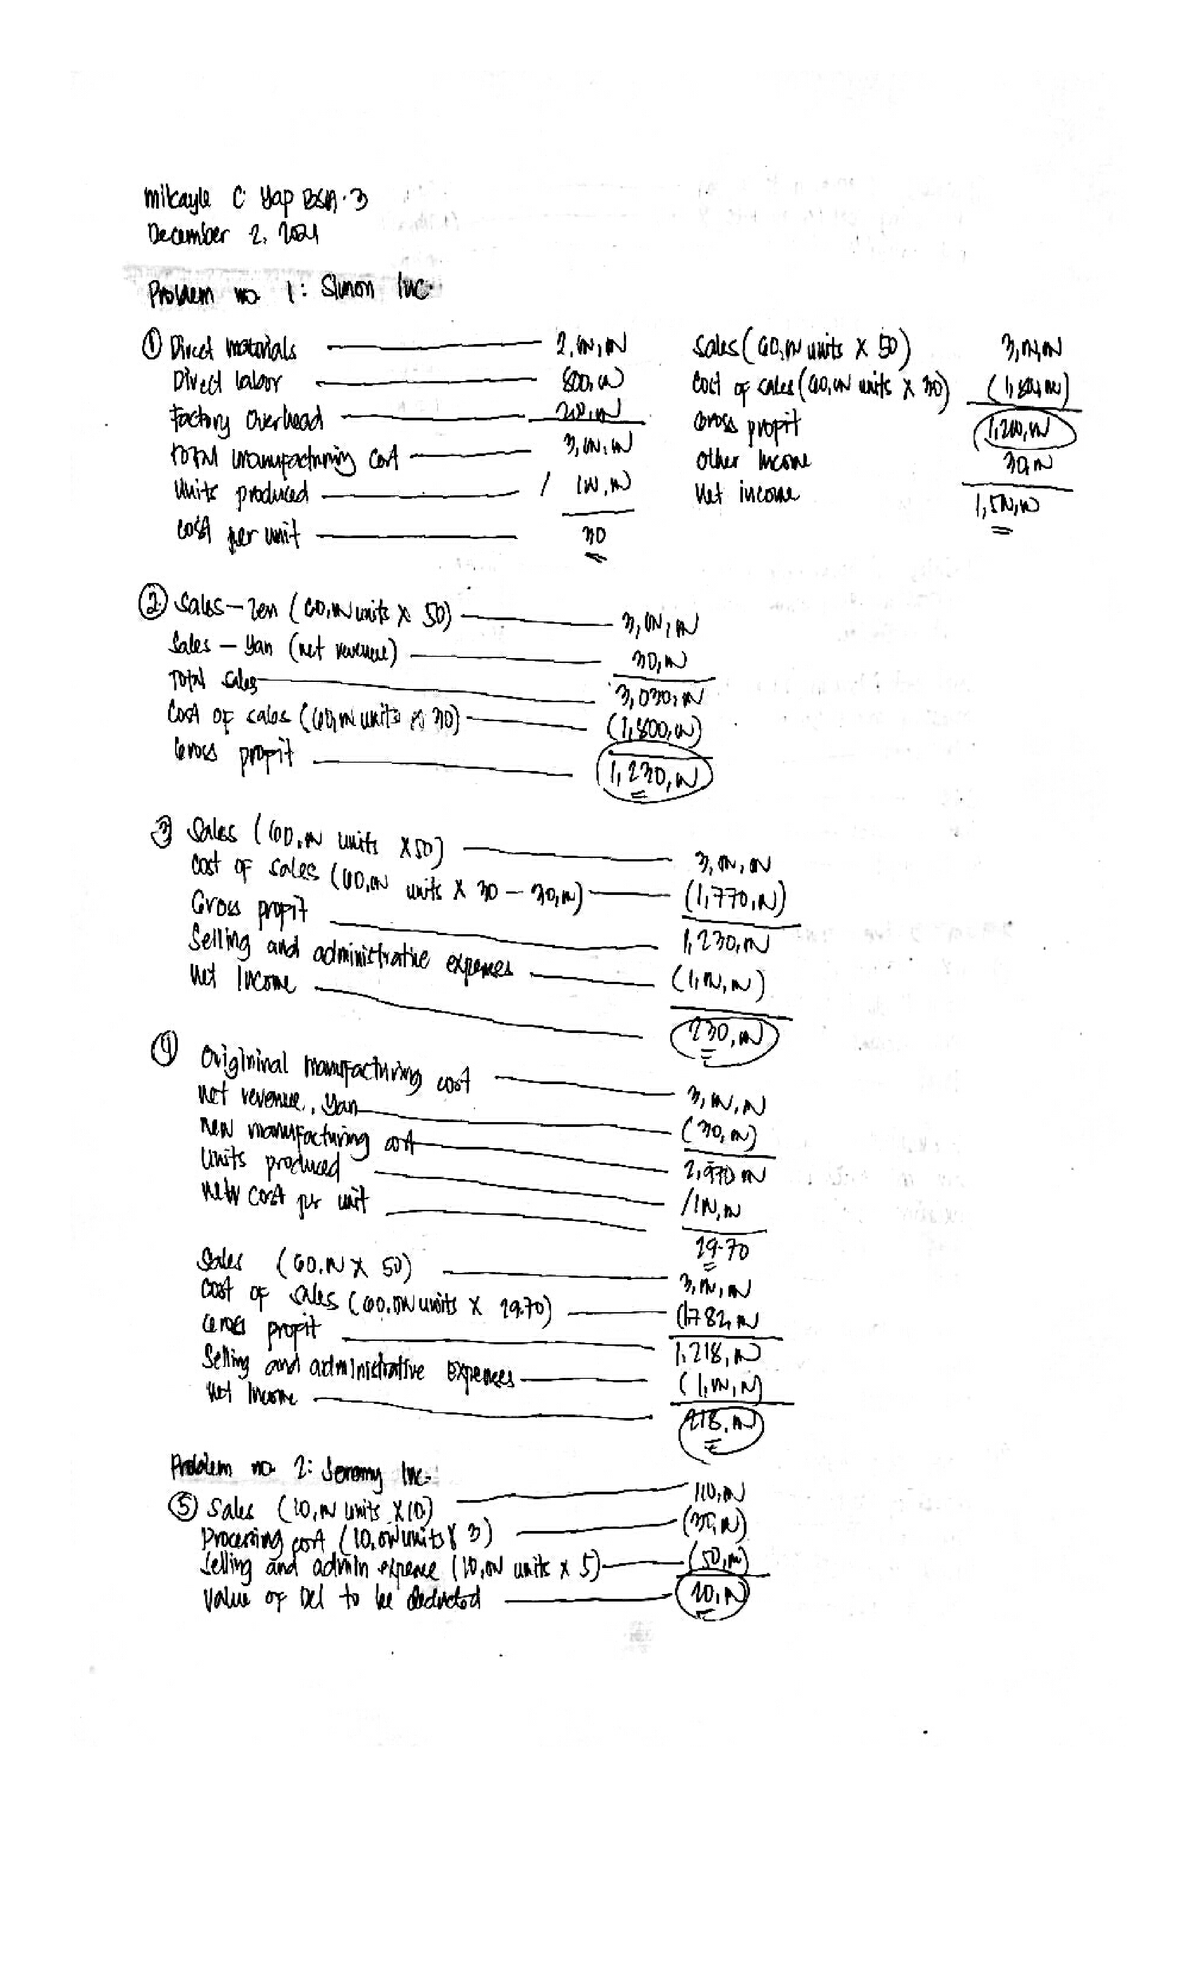 Mikayle C. Yap BSA-3
December 2, 2021
Problem no. 1: Simon Inc.
① Direct materials 2,000,000
Direct labor 800,000
Factory Overhead 200,000
Total manufacturing cost 3,000,000
Units produced / 100,000
Cost per unit 30
Sales (60,000 units x 50) 3,000,000
Cost of sales (60,000 units x 30) (1,800,000)
Gross profit 1,200,000
Other Income 30,000
Net income
② Sales - Zen (60,000 units x 50) 3,000,000
Sales - Yan (net revenue) 30,000
Total sales 3,030,000
Cost of sales (60,000 units x 30) (1,800,000)
Gross profit 1,230,000
③ Sales (60,000 units x 50) 3,000,000
Cost of sales (60,000 units x 30 - 30,000) (1,770,000)
Gross profit 1,230,000
Selling and administrative expenses (1,000,000)
Net Income 230,000
④ Origininal manufacturing cost 3,000,000
Net revenue, Yan (30,000)
New manufacturing cost 2,970,000
Units produced /100,000
New cost per unit 29.70
Sales (60,000 x 50) 3,000,000
Cost of sales (60,000 units x 29.70) (1,782,000
Gross profit 1,218,000
Selling and administrative expenses (1,000,000)
Net Income 218,000
Problem no. 2: Jeremy Inc.
⑤ Sales (10,000 units x 10)
Processing cost (10,000 units x 3) (30,000)
Selling and admin expense (10,000 units x 5) (50,000)
Value of Del to be deducted 20,000